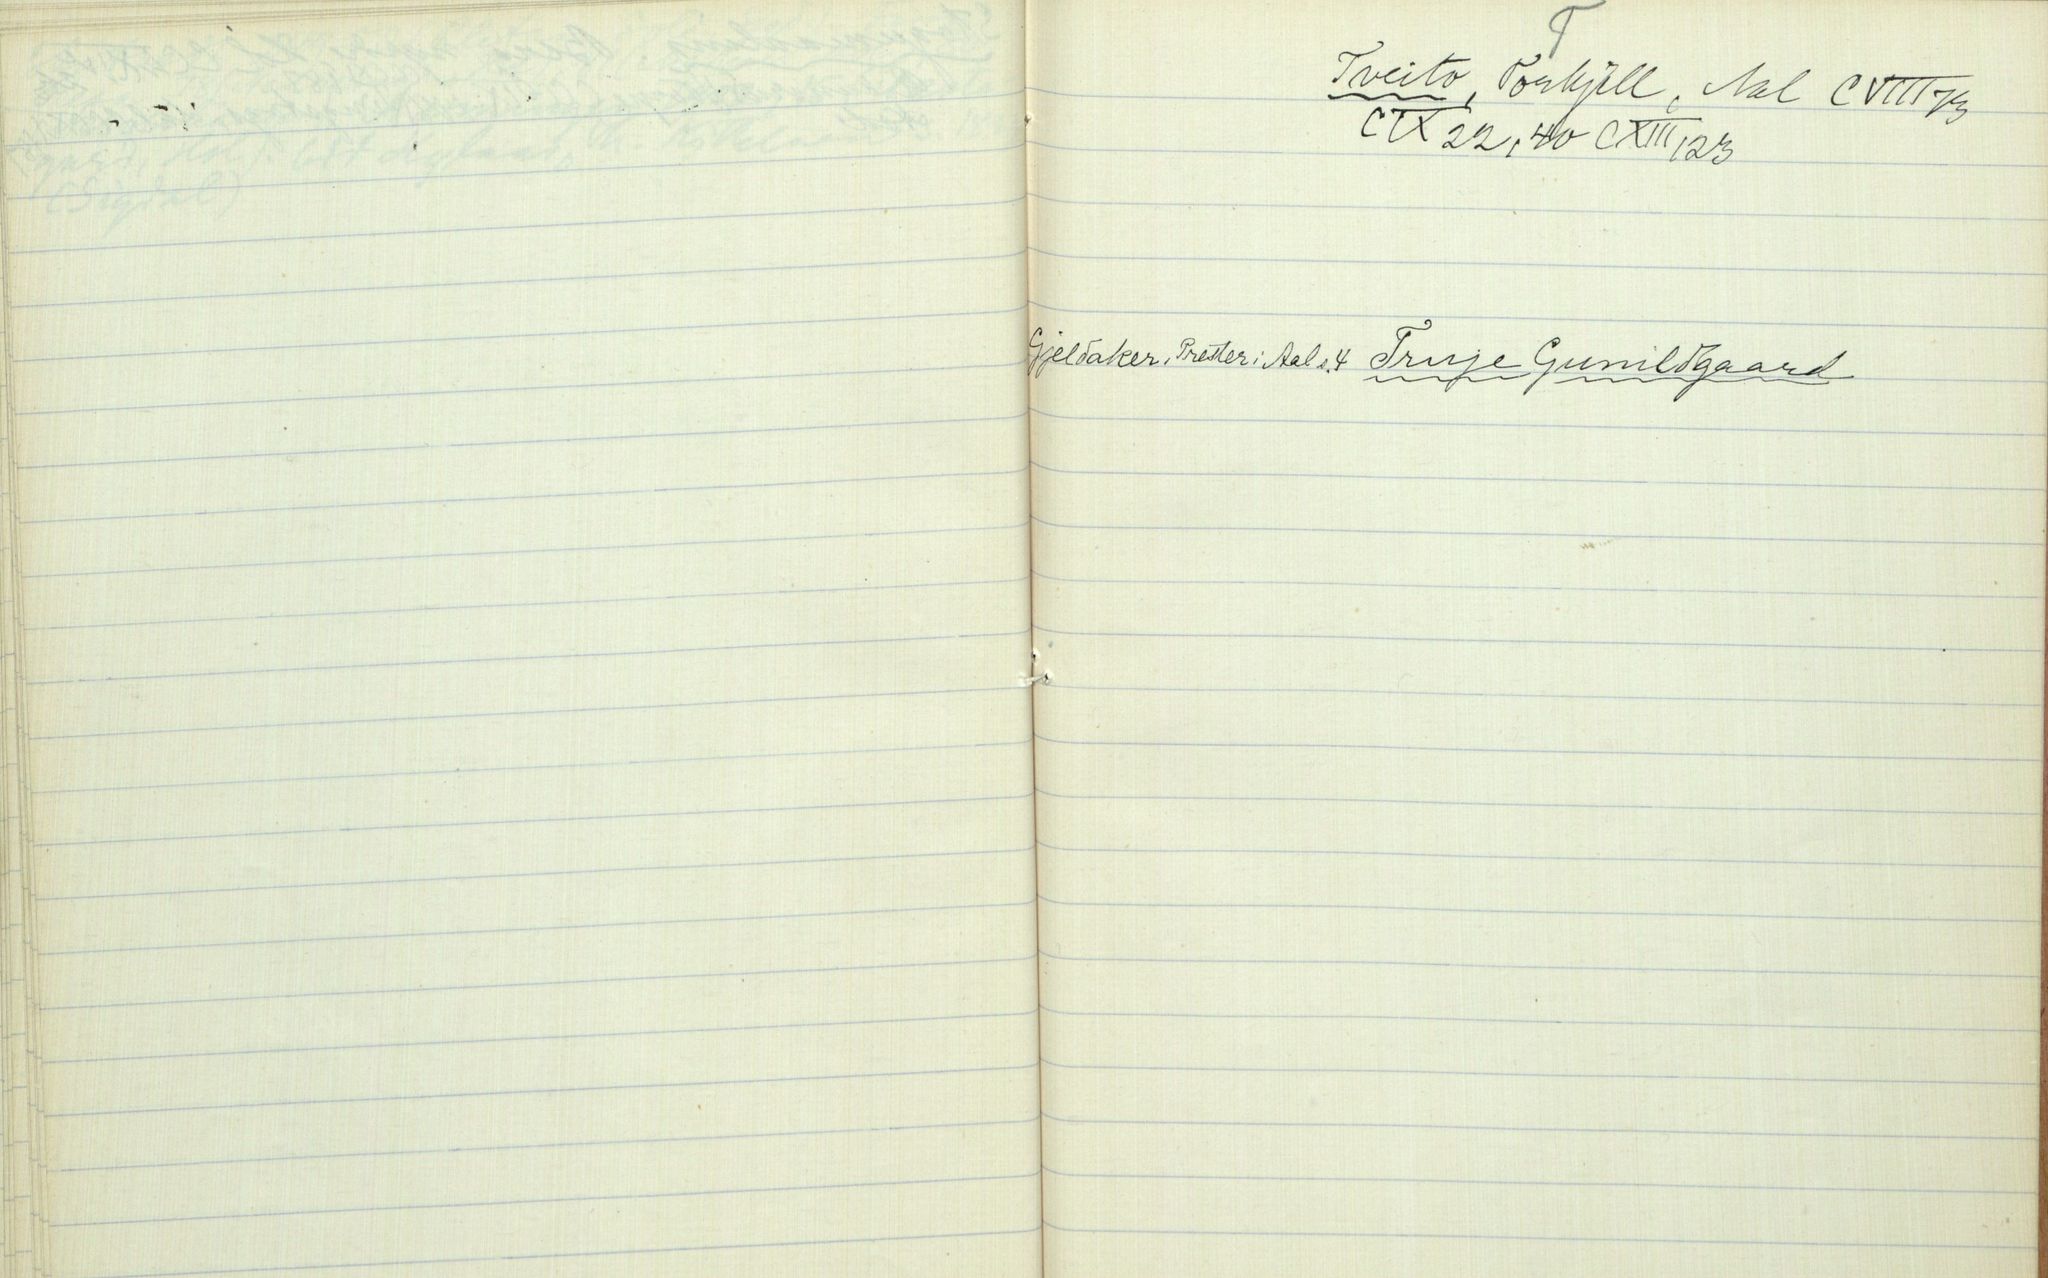 T
Tveito, Torkjell, Aal C VIII 73
C IX 22, 40 C XIII 123
Gjeldaker, Prester i Aal s. 4 Truje Gunildgaard